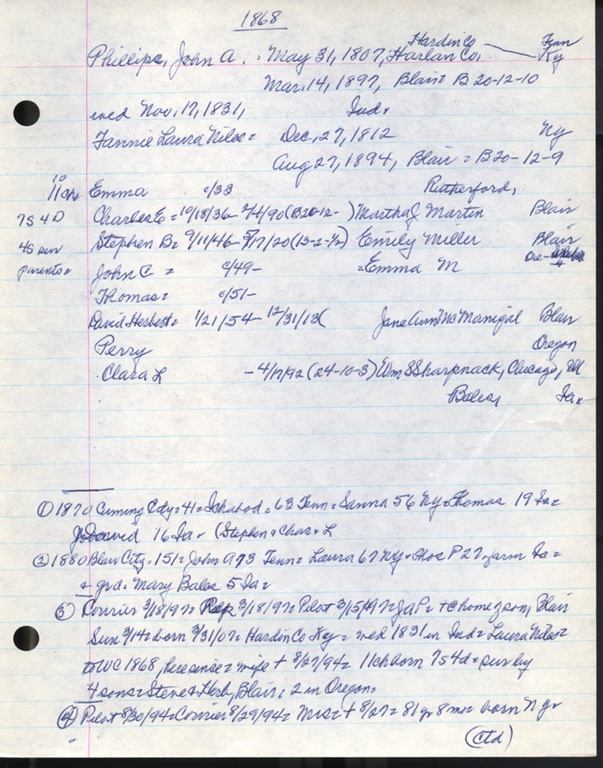 1868
Hardin Co Tenn
Phillips, John A. - May 31, 1807, Harlan Co. Ky
Mar. 14, 1897, Blair = B 20-12-10
wed Nov. 17, 1831, Ind.
Fannie Laura Niles = Dec, 27, 1812 Ny
Aug 27, 1894, Blair = B 20-12-9
10
11 ch Emma c/33 Rutherford,
7S 4D Charles E = 10/18/36- 2/4/90 (B20-12- ) Martha J Martin Blair
4s sur Stephen B = 9/11/46- (13-2-½) Emily Miller Blair
parents = John C = c/49- = Emma M Ore-
Thomas = c/51-
David Herbert = 1/21/54- 12/31/13( Jane Ann McManigal Blair
Perry Oregon
Clara L - 4/17/92 (24-10-3) Wm S Sharpnack, Chicago, Ill
Bales, Ia =
① 1870 Cuming City = 41 = Ichabod = 63 Tenn = Sanna 56 Ny = Thomas 19 Ia =
David 16 Ia = (Stephen & Chas = L
② 1880 Blair City = 151 = John A 73 Tenn = Laura 67 Ny = Thos P 27 = farm Ia =
+ grd. Mary Bales 5 Ia =
③ Courier 3/18/97 = Rep 3/18/97 = Pilot 3/15/97 = JAP = + @ home of son, Blair
Sun 3/14 = born 3/31/07 = Hardin Co Ky = wed 1831 in Ind = Laura Niles =
to WC 1868, here since = wife + 8/27/94 = 11 ch born 7s 4d = sur by
4 sons = Steve & Herb, Blair, 2 in Oregon =
④ Pilot 8/30/94 = Courier 8/29/94 = Mrs = + 8/27 = 81 yr 8 mo = born N Y =
(ctd)